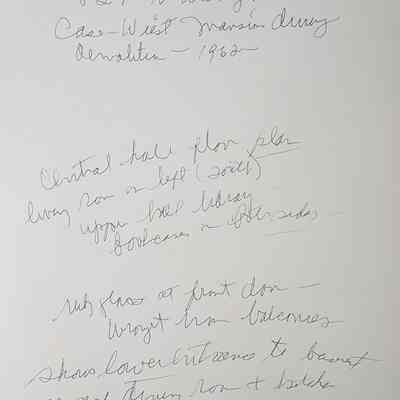 Case-Wiest Mansion during
Demolition - 1962
Central hall floor plan
living room on left (south)
upper hall library
bookcases on both sides
ruby glass at front door -
wrought iron balconies
shows lower entrance to basement
dining room + kitchen